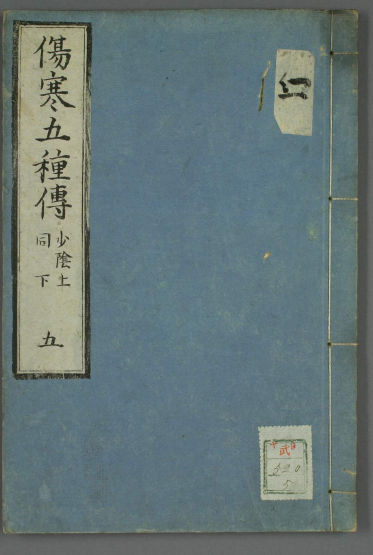 傷寒五種傳
少陰上
同下
五
仁
武